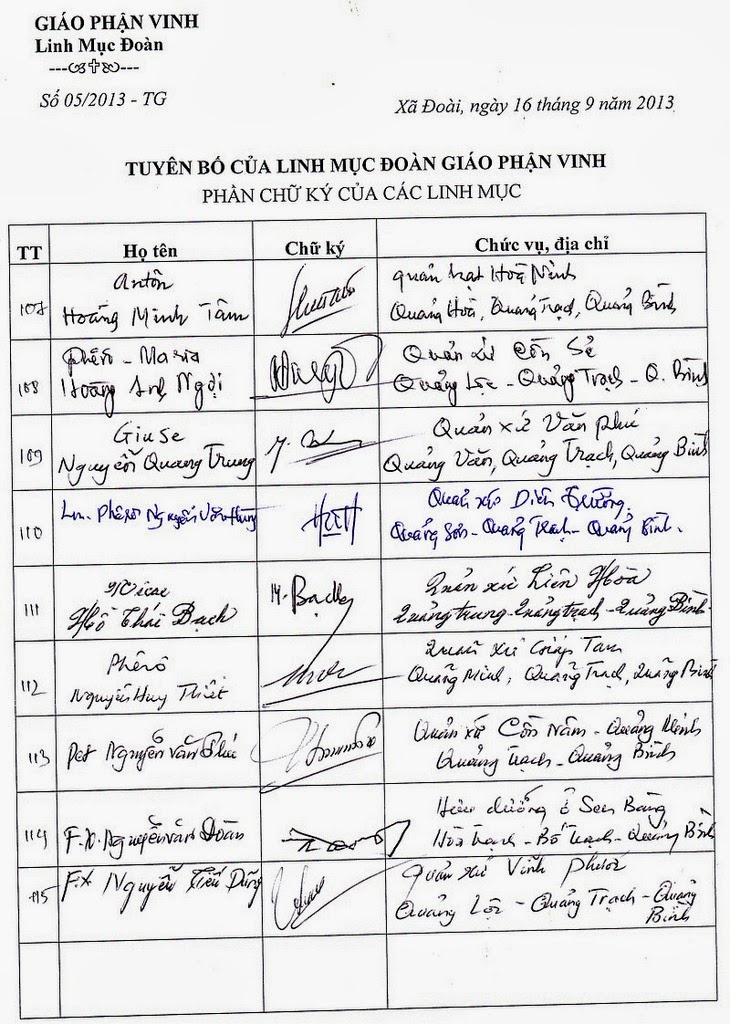 GIÁO PHẬN VINH
Linh Mục Đoàn
Số 05/2013 - TG
Xã Đoài, ngày 16 tháng 9 năm 2013
TUYÊN BỐ CỦA LINH MỤC ĐOÀN GIÁO PHẬN VINH
PHẦN CHỮ KÝ CỦA CÁC LINH MỤC
TT Họ tên Chữ ký Chức vụ, địa chỉ
107 Antôn quản hạt Hoà Ninh
Hoàng Minh Tâm Quảng Hoà, Quảng Trạch, Quảng Bình
108 Phêrô - Maria Quản xứ Cồn Sẻ
Hoàng Anh Ngợi Quảng Lộc - Quảng Trạch - Q. Bình
109 Giuse Quản xứ Văn phú
Nguyễn Quang Trung Quảng Văn, Quảng Trạch, Quảng Bình
110 Lm. Phêrô Nguyễn Văn Hùng Quản xứ Diên Trường
Quảng Sơn - Quảng Trạch - Quảng Bình.
111 M. Bạch Quản xứ Liên Hòa
Hồ Thái Bạch Quảng trung - Quảng trạch - Quảng Bình
112 Phêrô Quản xứ Giáp Tam
Nguyễn Huy Thiết Quảng Minh, Quảng Trạch, Quảng Bình
113 Nguyễn văn Quản xứ Cồn Nâm - Quảng Minh
Quảng Trạch - Quảng Bình
114 F.X. Nguyễn văn Đoàn Hưu dưỡng ở Sen Bàng
Hòa Trạch - Bố Trạch - Quảng Bình
115 F.X Nguyễn Tiến Dũng Quản xứ Vĩnh phước
Quảng Lộc - Quảng Trạch - Quảng
Bình